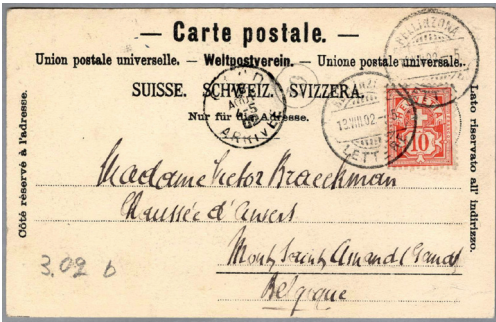 — Carte postale. —
Union postale universelle. — Weltpostverein. — Unione postale universale..
SUISSE. SCHWEIZ. SVIZZERA.
Nur für die Adresse.
Côté réservé à l'adresse.
Lato riservato all' indirizzo.
BELLINZONA
LETT.
13.VIII.02
GAND
ARRIVÉE
10
Madame Victor Braeckman
Chaussée d'Anvers
Mont Saint Amand (Gand)
Belgique
3.02 b